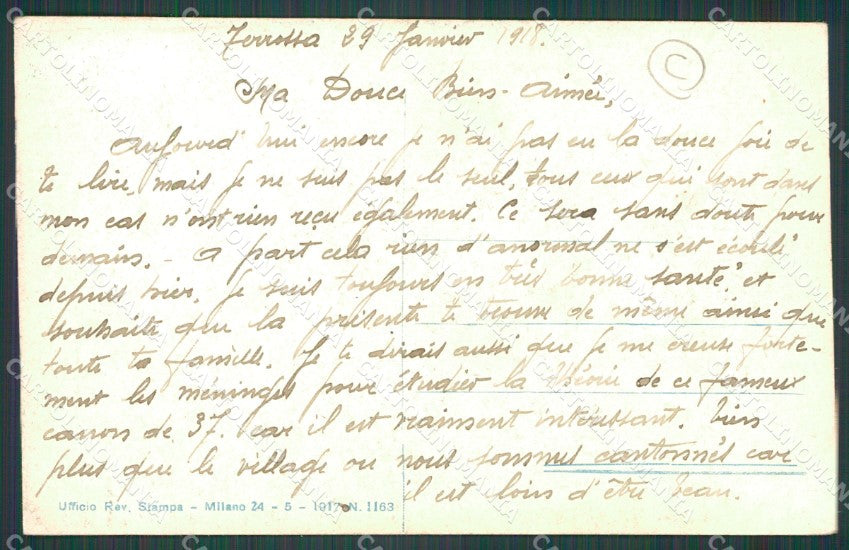 Terrossa 29 Janvier 1918.
Ma Douce Bien-Aimée,
Aujourd'hui encore je n'ai pas eu la douce joie de
te lire, mais je ne suis pas le seul, tous ceux qui sont dans
mon cas n'ont rien reçu également. Ce sera sans doute pour
demain. - A part cela rien d'anormal ne s'est écoulé
depuis hier. Je suis toujours en très bonne santé, et
souhaite que la présente te trouve de même ainsi que
toute ta famille. Je te dirais aussi que je me creuse forte-
ment les méninges pour étudier la théorie de ce fameux
canon de 37. car il est vraiment intéressant. bien
plus que le village ou nous sommes cantonnés car
il est loin d'être beau.
Ufficio Rev. Stampa - Milano 24 - 5 - 1917 - N. 1163
C
CARTOLINOMANIA